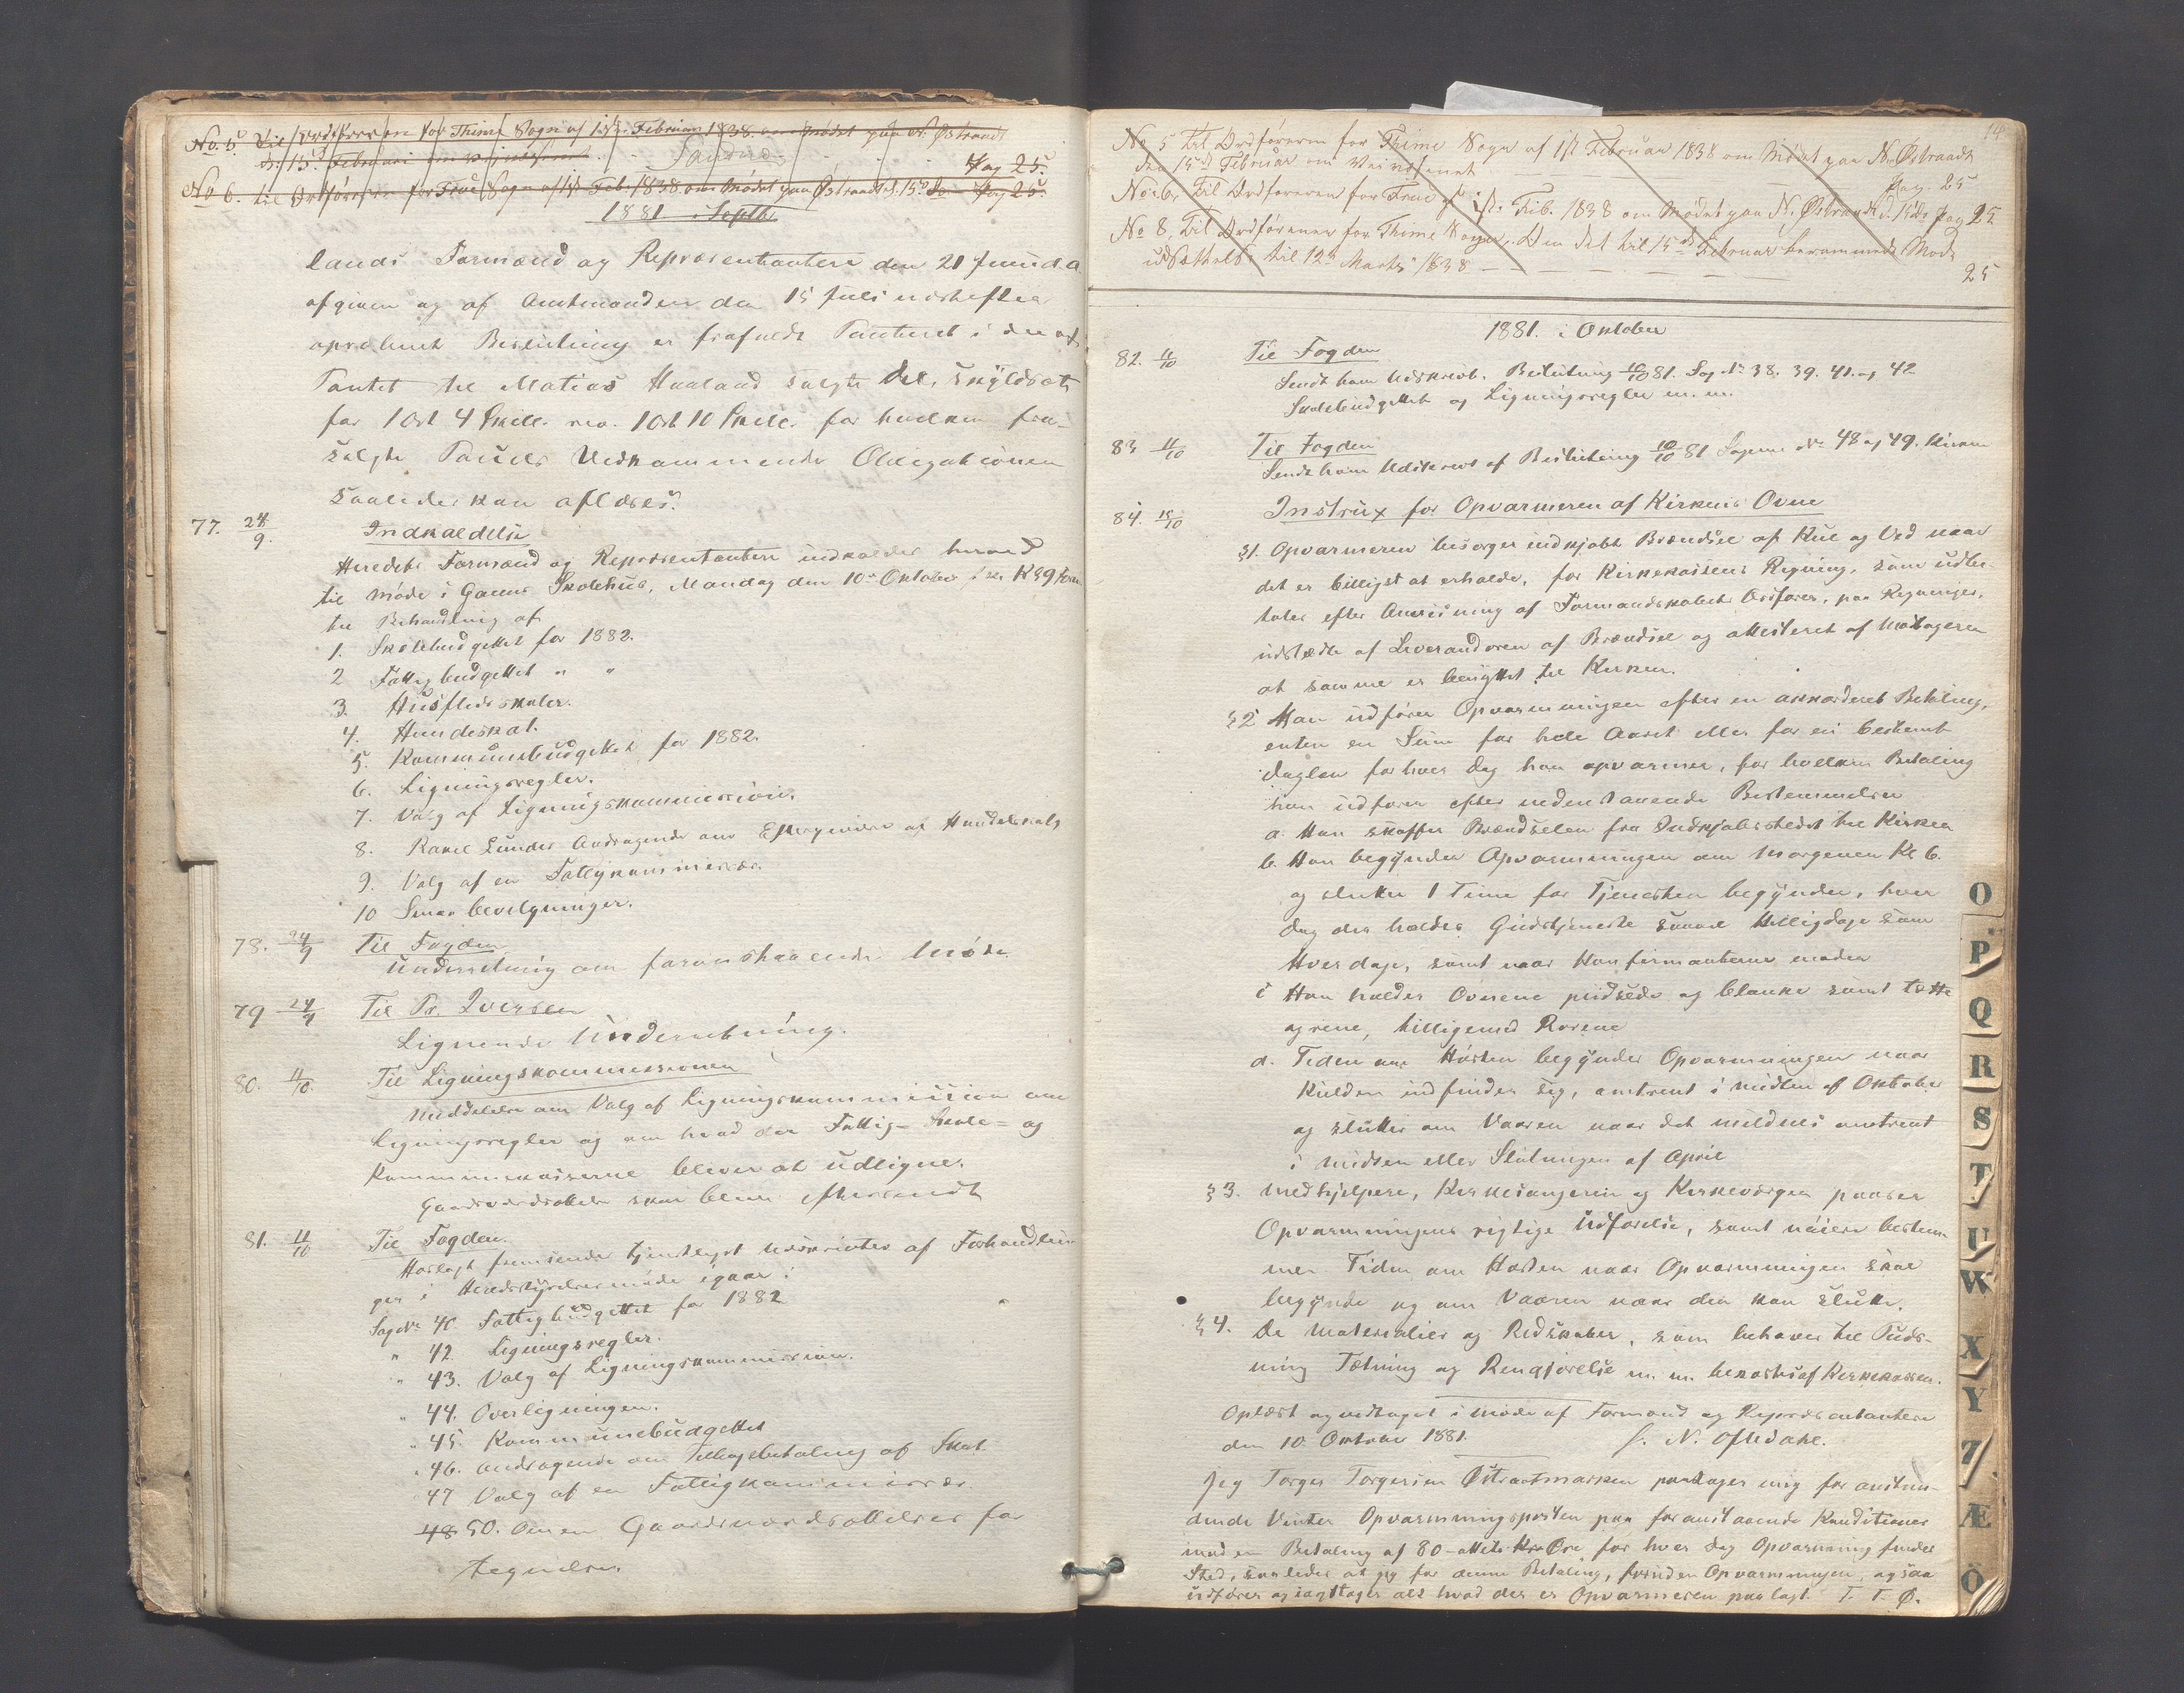 No. 5. Til Ordføreren for Thime Sogn af 1ste Februar 1838. om Mødet paa N. Østraadt
d: 15d Februari
Pag 25.
No 6. til Ordføreren for Frue Sogn af 1ste Feb. 1838. om Mødet paa Østraadt d. 15d do Pag 25.
1881 i Septbr
lands Formænd og Repræsentantere den 21 Juni d.a.
afgiven og af Amtmanden den 15 Juli næstefter
aproberet Beslutning er frafaldt Panteret i den af
Pantet til Matias Haaland solgte Del, Skyldsat
for 1 Ort 4 Skill. rev. 1 Ort 10 Skill. for hvilken fra-
solgte Parcel Vedkommende Obligationen
saaledes kan aflæses.
77. 24/9. Indkaldelse
Heredets Formænd og Repræsentantere indkaldes herved
til Møde i Gannd Skolehus, Mandag den 10de Oktober Kl 9 Form
til Behandling af
1. Skolebudgettet for 1882.
2 Fattigbudgettet " "
3. Husflidsskoler.
4. Hundeskat.
5. Kommunebudgettet for 1882.
6. Ligningsregler.
7. Valg af Ligningskommission.
8. Rakel Lundes Andragende om Eftergivelse af Hundeskat
9. Valg af en Fattigkommissær.
10 Smaa bevilgninger.
78. 24/9 Til Fogden
Underretning om foranstaaende Møde
79 24/9 Til Pr. Iversen
Lignende Underretning.
80. 11/10. Til Ligningskommissionen
Meddelelse om Valg af Ligningskommission om
Ligningsregler og om hvad der Fattig- Skole- og
Kommunekasserne bliver at udligne.
Gaardsværdsættelse skal blive eftersendt
81. 11/10 Til Fogden.
Hoslagt fremsendes tjenstligst Udskrifter af Forhandlin
ger i Heredsstyrelsesmøde igaar:
Sag No 40. Fattigbudgettet for 1882
" 42. Ligningsregler.
" 43. Valg af Ligningskommission.
" 44. Overligningen.
" 45. Kommunebudgettet
" 46. Andragende om Tilbagebetaling af Skat.
47 Valg af en Fattigkommissær
48 50. Om en Gaardsværdsættelse for
14
No 5 Til Ordføreren for Thime Sogn af 1ste Februar 1838 om Mødet paa N. Østraadt
den 15d Februar om Veivæsenet Pag. 25
No. 6. Til Ordføreren for Frue 1ste Feb. 1838 om Mødet paa N. Østraadt d. 15 do Pag 25
No 8, Til Ordførerne for Thime Sogn. Om det til 15de Februar berammede Møde
udsættelse til 12te Marts 1838 25
1881. i Oktober
82. 11/10 Til Fogden
Sendt ham Udskrivt. Beslutning 10/10 81. Sag No 38. 39. 41. og 42
Skolebudgettet og Ligningsregler m. m.
83 11/10 Til Fogden
Sendt ham Udskrivt af Beslutning 10/10 81 Sagerne No 48 og 49. Kirken
84. 15/10 Instrux for Opvarmeren af Kirkens Ovne
§1. Opvarmeren besørger indkjøbt Brændsel af Kul og Ved naar
det er billigst at erholde, for Kirkekassens Regning, som udbe-
tales efter Anvisning af Formandskabets Ordfører, paa Regninger,
udstædte af Leverandøren af Brændsel og attesteret af Modtageren
at samme er benyttet til Kirken.
§2 Han udfører Opvarmningen efter en akkorderet Betaling,
enten en Sum for hele Aaret eller for en bestemt
Dagløn for hver Dag han opvarmer, for hvilken Betaling
han udfører efter nedenstaaende Bestemmelser
a. Han skaffer Brændselen fra Indkjøbsstedet til Kirken
b. Han begynder Opvarmningen om Morgenen Kl 6.
og slutter 1 Time før Tjenesten begynder, hver
Dag der holdes Gudstjeneste saavel Helligdage som
Hverdage, samt naar Konfirmanterne møder
c Han holder Ovnene pudsede og blanke samt tætte
og rene, tilligemed Rørene
d. Tiden om Høsten begynder Opvarmningen naar
Kulden indfinder sig, omtrent i Midten af Oktober
og slutter om Vaaren naar det mildnes omtrent
i Midten eller Slutningen af April
§3. Medhjelpere, Kirkesangeren og Kirkeværgen paaser
Opvarmningens rigtige Udførelse, samt nøiere bestem-
mer Tiden om Høsten naar Opvarmningen skal
begynde og om Vaaren naar den kan slutte.
§4. De Materialier og Redskaber, som behøves til Puds-
ning Tætning og Rengjørelse m. m. bekostes af Kirkekassen.
Oplæst og vedtaget i Møde af Formænd og Repræsentantere
den 10. Oktober 1881. J. N. Oftedahl.
Jeg Torger Torgersen Østraatmarken paatager mig for anstun-
dende Vinter Opvarmningsposten paa foranstaaende Konditioner
mod en Betaling af 80 - otteti Kr Øre for hver Dag Opvarmning finder
Sted, saaledes at jeg for denne Betaling, foruden Opvarmningen, ogsaa
udfører og iagttager alt hvad der er Opvarmeren paalagt. T. T. Ø.
O
P
Q
R
S
T
U
W
X
Y
Z
Æ
Ö